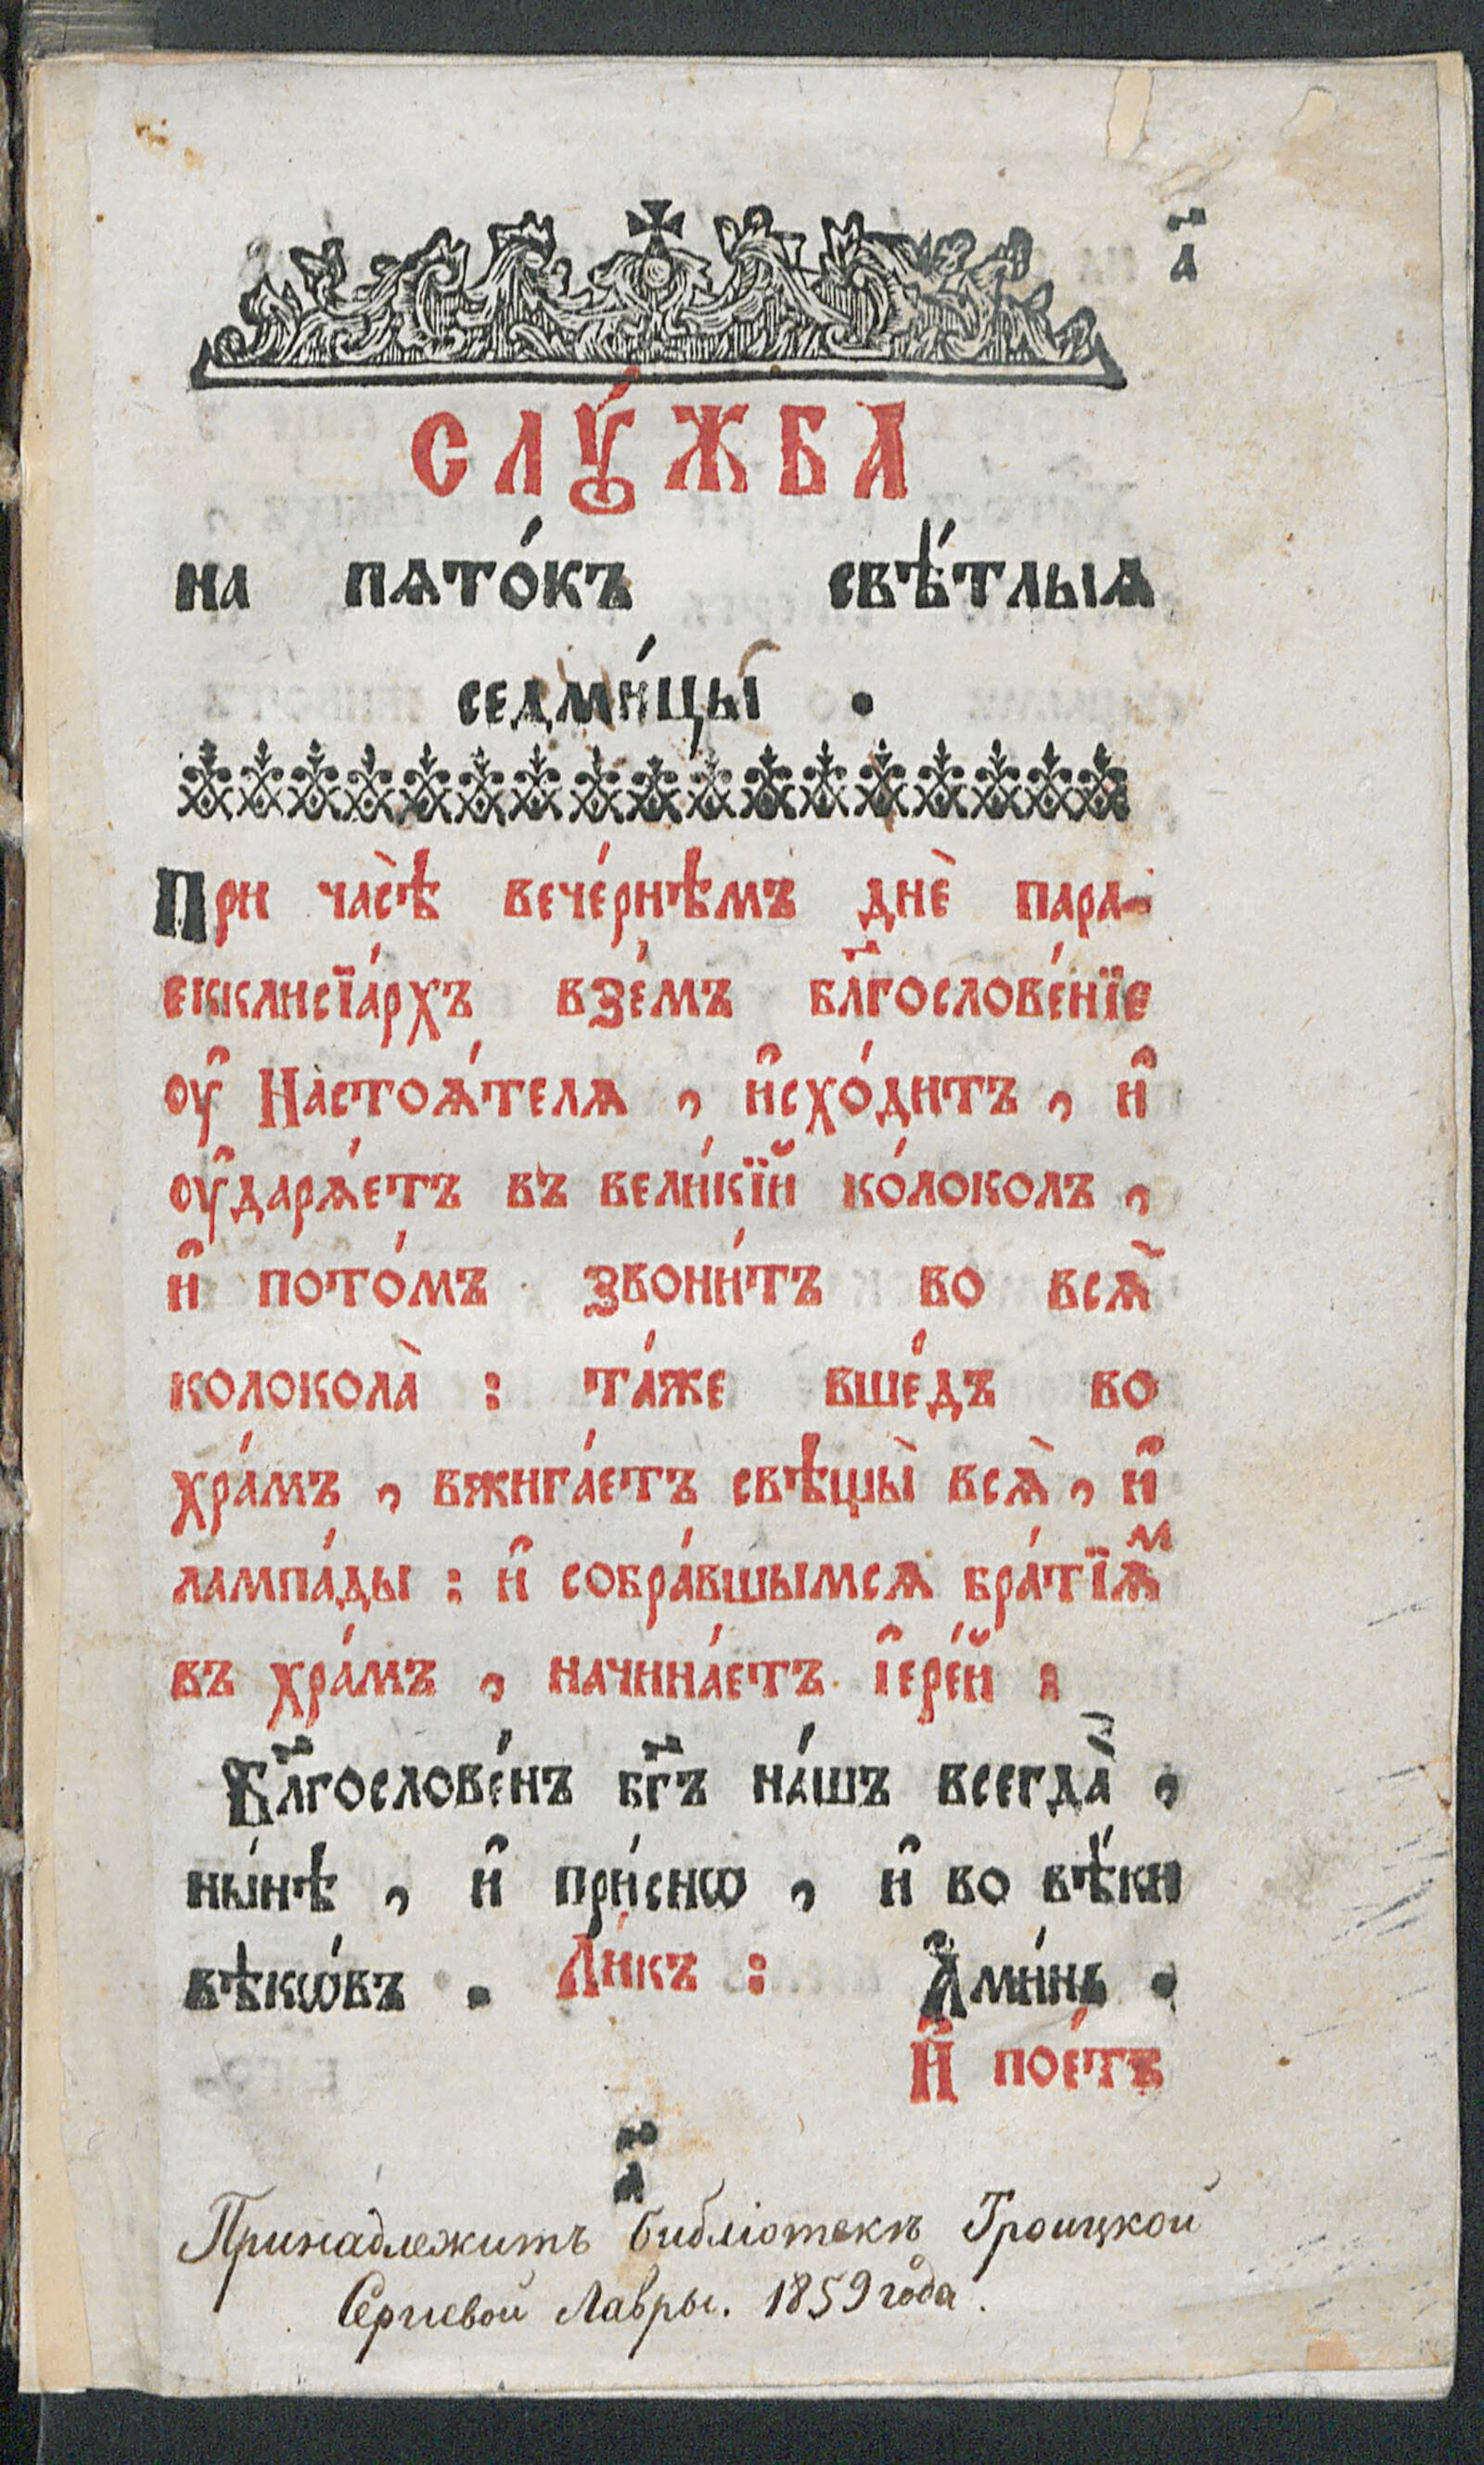 а҃
СЛꙊ́ЖБА
на пѧто́къ свѣ́тлыѧ
седми́цы .
При ча̀сѣ вече́рнѣмъ днѐ пара-
екклисїа́рхъ взе́мъ бл҃гослове́нїе
ᲂу҆ Настоѧ́телѧ , и҆схо́дитъ , и҆
ᲂу҆дарѧ́етъ въ вели́кїй ко́локолъ ,
и҆ пото́мъ звони́тъ во всѧ̑
колокола̀ : та́же вше́дъ во
хра́мъ , вжига́етъ свѣщы̀ всѧ̑ , и҆
лампа́ды : и҆ собра́вшымсѧ бра́тїѧⷨ
въ хра́мъ , начина́етъ і҆ере́й :
Бл҃гослове́нъ бг҃ъ на́шъ всегда̀ ,
ны́нѣ , и҆ при́снѡ , и҆ во вѣ́ки
вѣкѡ́въ . Ли́къ : А҆ми́нь .
И҆ пое́тъ
а҃
Принадлежитъ библіотекѣ Троицкой
Сергіевой Лавры. 1859 года.